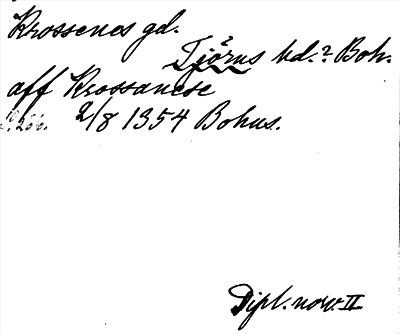 Krossenes gd.
Tjörns hd.? Boh.
aff Krossanese
S. 266. 2/8 1354 Bohus.
Dipl. norv. II